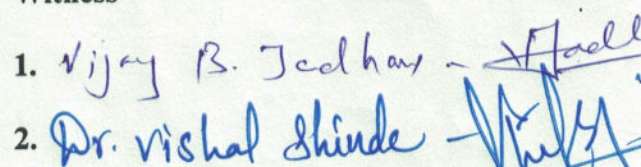 Witness
1. Vijay B. Jadhav -
2. Dr. Vishal Shinde -